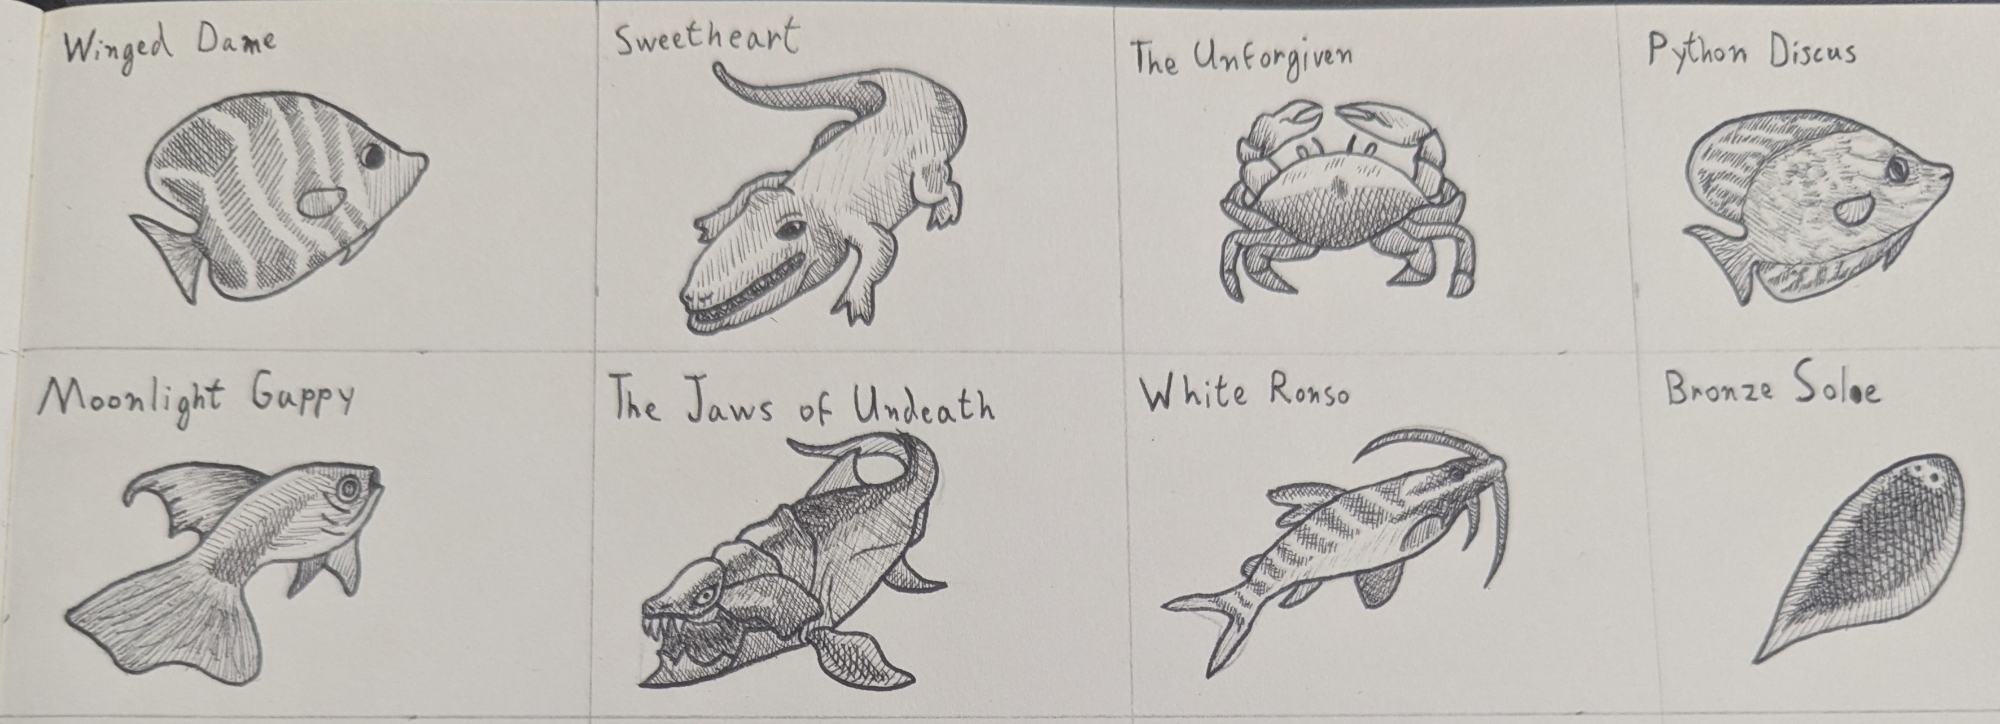 Winged Dame
Sweetheart
The Unforgiven
Python Discus
Moonlight Guppy
The Jaws of Undeath
White Ronso
Bronze Sole